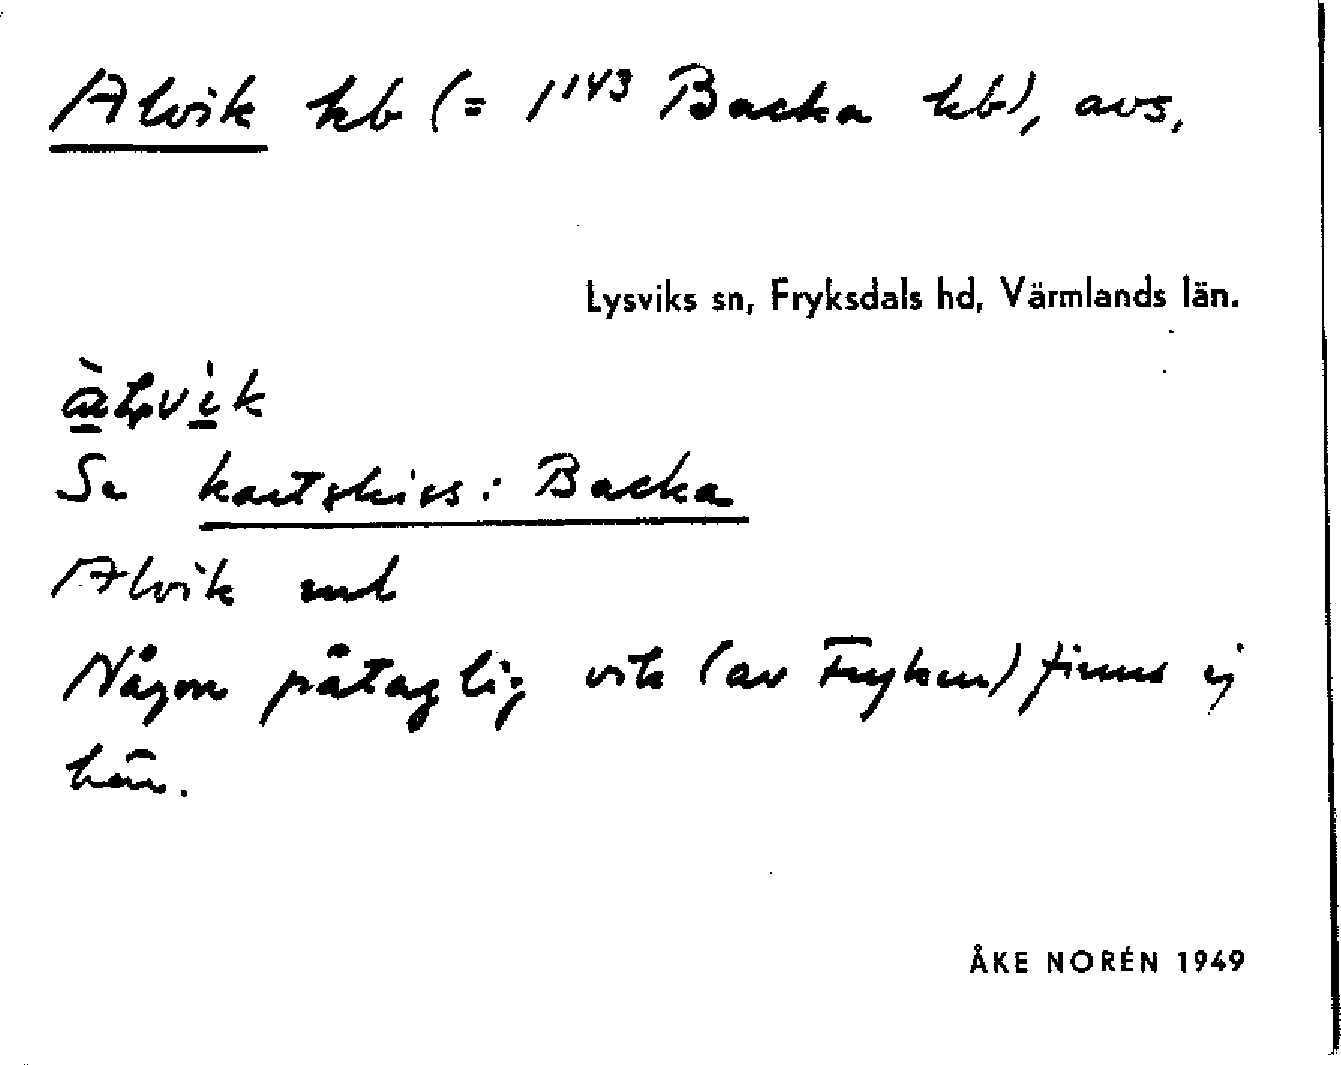 Alvik hb (= 1¹⁴³ Backa hb), avs.
Lysviks sn, Fryksdals hd, Värmlands län.
Se kartskiss: Backa
Alvik
Någon påtaglig vik (av Fryken) finns ej
här.
ÅKE NORÉN 1949